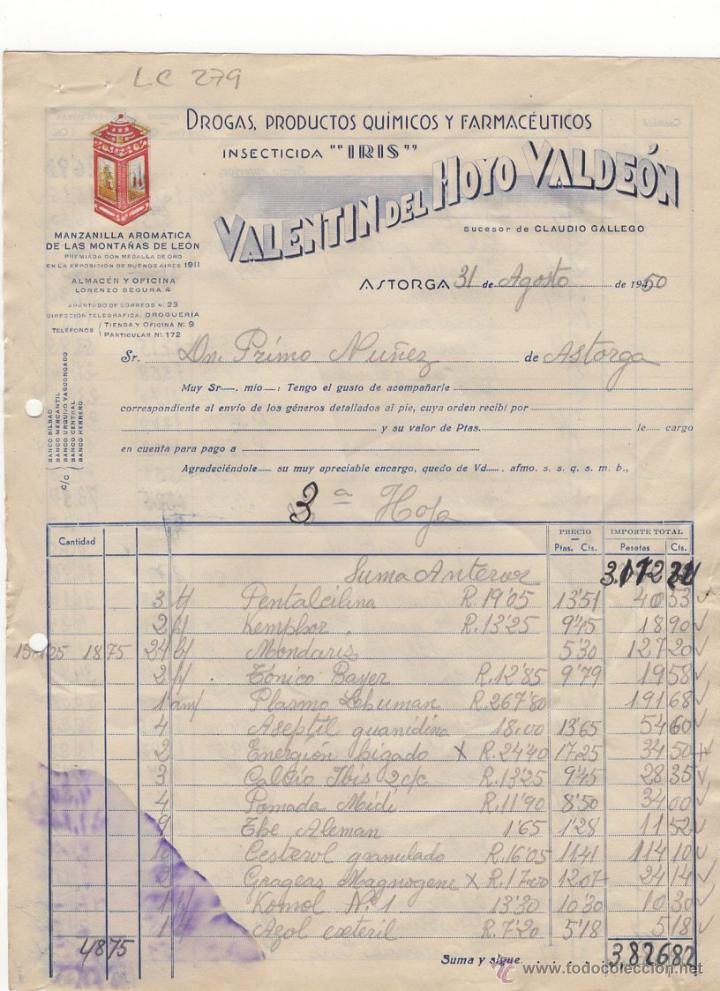 LC 279
DROGAS, PRODUCTOS QUÍMICOS Y FARMACÉUTICOS
INSECTICIDA ""IRIS""
VALENTIN DEL HOYO VALDEÓN
Sucesor de CLAUDIO GALLEGO
MANZANILLA AROMATICA
DE LAS MONTAÑAS DE LEÓN
PREMIADA CON MEDALLA DE ORO
EN LA EXPOSICIÓN DE BUENOS AIRES 1911
ALMACÉN Y OFICINA
LORENZO SEGURA 4
APARTADO DE CORREOS N. 23
DIRECCIÓN TELEGRÁFICA: DROGUERIA
TELÉFONOS TIENDA Y OFICINA N.º 9
PARTICULAR N.º 172
ASTORGA 31 de Agosto de 1950
Sr. Dn. Primo Nuñez de Astorga
c/c BANCO BILBAO
BANCO MERCANTIL
BANCO URQUIJO VASCONGADO
BANCO CENTRAL
BANCO HERRERO
Muy Sr. mío: Tengo el gusto de acompañarle
correspondiente al envío de los géneros detallados al pie, cuya orden recibí por
y su valor de Ptas. le cargo
en cuenta para pago a
Agradeciéndole su muy apreciable encargo, quedo de Vd., afmo. s. s. q. s. m. b.,
3ª Hoja
Cantidad PRECIO IMPORTE TOTAL
Ptas. Cts. Pesetas Cts.
Suma Anterior
3 Pentalcilina R. 19'05 13'51 40 53
2 R. 13'25 9'45 18 90
18 75 24 Mendaris 5'30 127 20
2 Tónico Bayer R. 12'85 9'79 19 58
1 Plasmo Lehuman R. 267'80 191 68
4 Aseptil guanidina 18'00 13'65 54 60
2 Energión pigado x R. 24'40 17'25 34 50
3 Calcio Ibis 2 c/c R. 13'25 9'45 28 35
4 Pomada Meidi R. 11'90 8'50 34 00
9 The Aleman 1'65 1'28 11 52
10 Cesterol granulado R. 16'05 11'41 114 10
2 Grageas Magnogene x R. 17'00 12'07 24 14
1 Komol Nº 1 13'30 10'30 10 30
1 Azol R. 7'20 5'18 5 18
48 75
Suma y sigue 3,826 82
www.todocoleccion.net